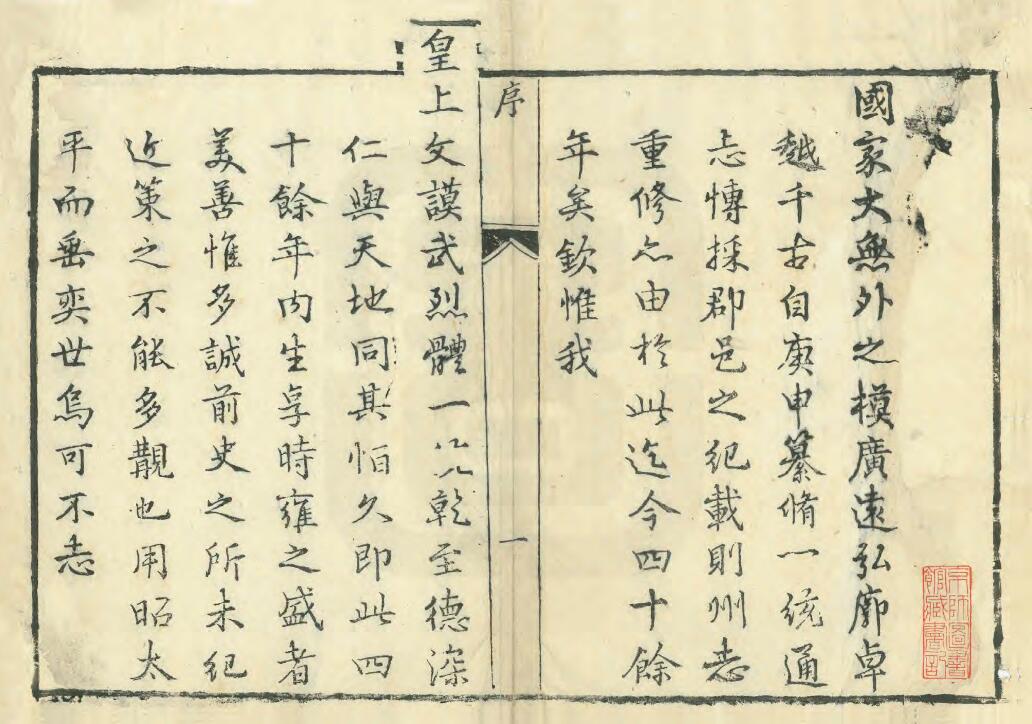 國家大無外之模廣遠弘廓卓
越千古自庚申纂脩一統通
志慱採郡邑之紀載則州志
重修亦由於此迄今四十餘
年矣欽惟我
序
一
皇上文謨武烈體一以乾至德深
仁與天地同其恒久即此四
十餘年內生享時雍之盛者
美善惟多誠前史之所未紀
近策之不能多覯也用昭太
平而垂奕世烏可不志
京師圖書
館藏書記